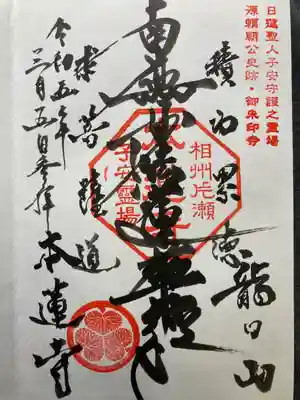 日蓮聖人子安守護之霊場
源頼朝公史跡・御朱印寺
積功累徳
龍口山
相州片瀬
南無妙法蓮華経
子安霊場
求菩薩道
本蓮寺
令和五年
三月五日参拝